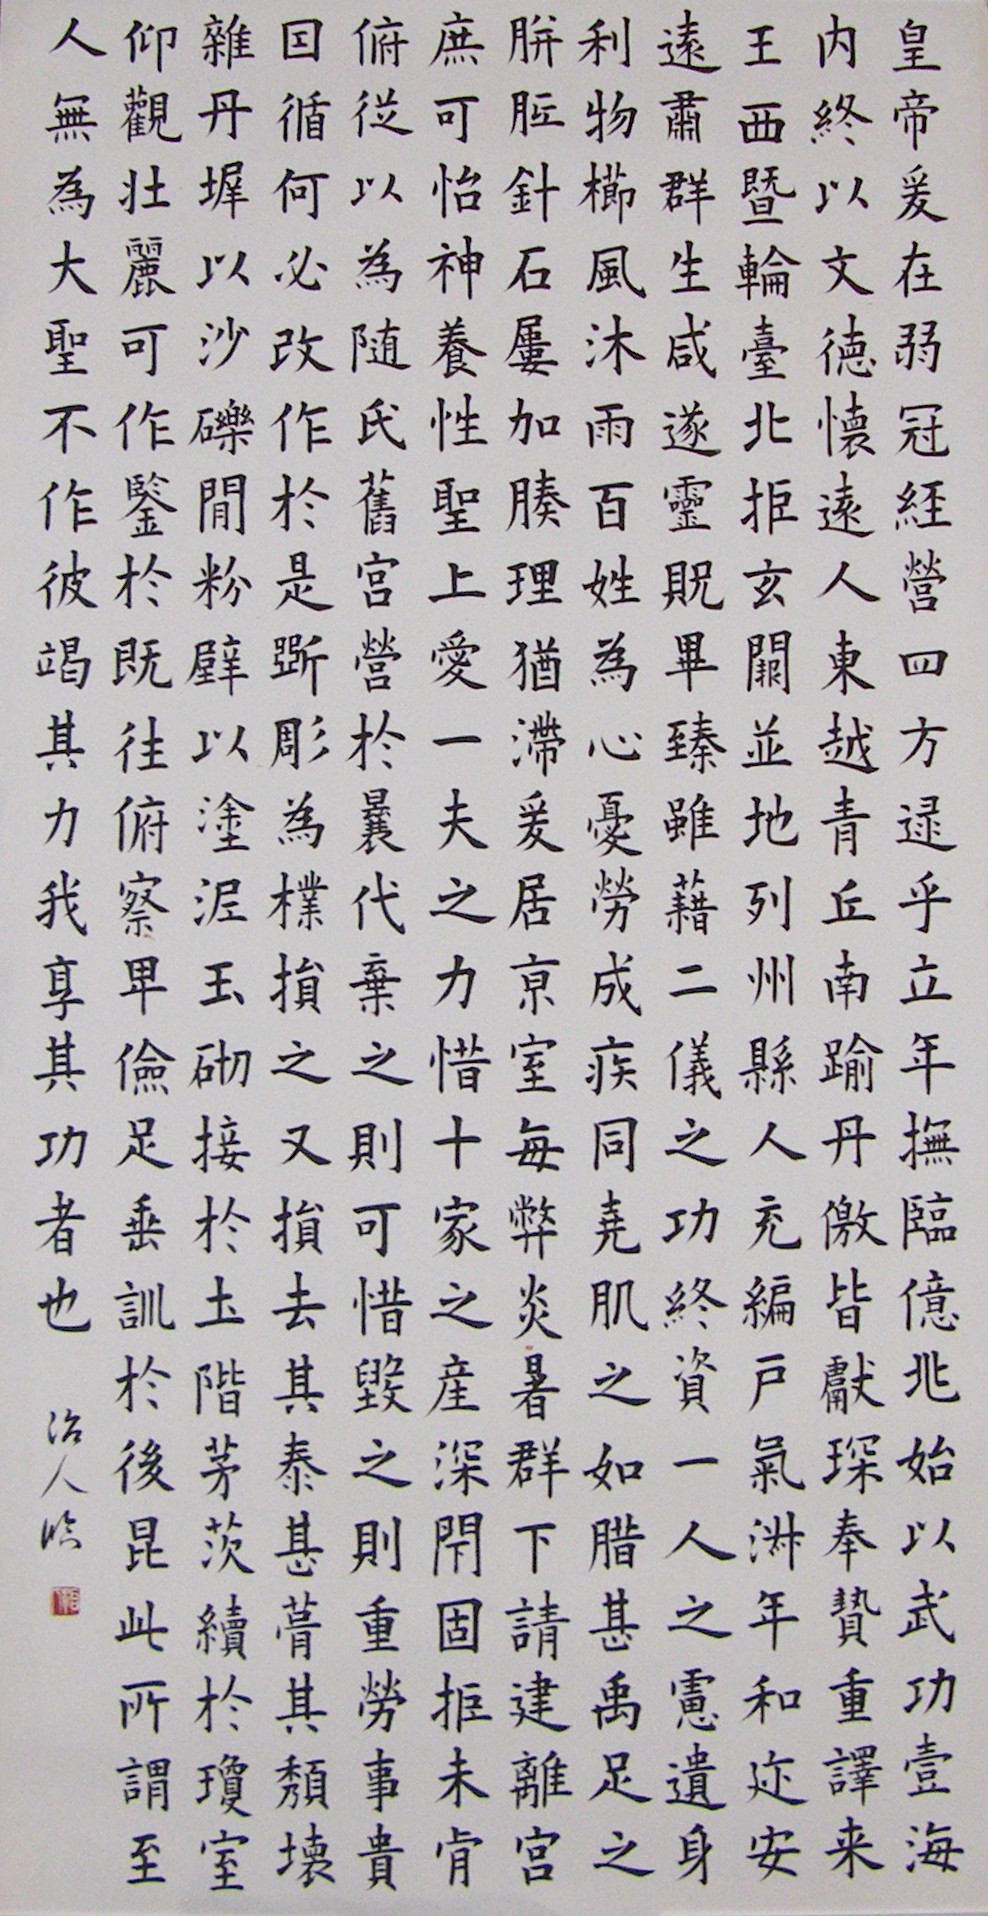 皇帝爰在弱冠経營四方逯乎立年撫臨億兆始以武功壹海
内終以文徳懐遠人東越青丘南踰丹儌皆獻琛奉贄重譯来
王西暨輪臺北拒玄闕並地列州縣人充編戸氣淋年和迩安
遠肅群生咸遂靈貺畢臻雖藉二儀之功終資一人之慮遺身
利物櫛風沐雨百姓為心憂勞成疾同堯肌之如腊甚禹足之
胼胝針石屢加腠理猶滯爰居京室每弊炎暑群下請建離宮
庶可怡神養性聖上愛一夫之力惜十家之産深閇固拒未肯
俯從以為随氏舊宮營於曩代棄之則可惜毀之則重勞事貴
因循何必改作於是斲彫為樸損之又損去其泰甚葺其頽壊
雜丹墀以沙礫間粉壁以塗泥玉砌接於土階茅茨續於瓊室
仰觀壮麗可作鑒於既往俯察卑儉足垂訓於後昆此所謂至
人無為大聖不作彼竭其力我享其功者也
治人臨